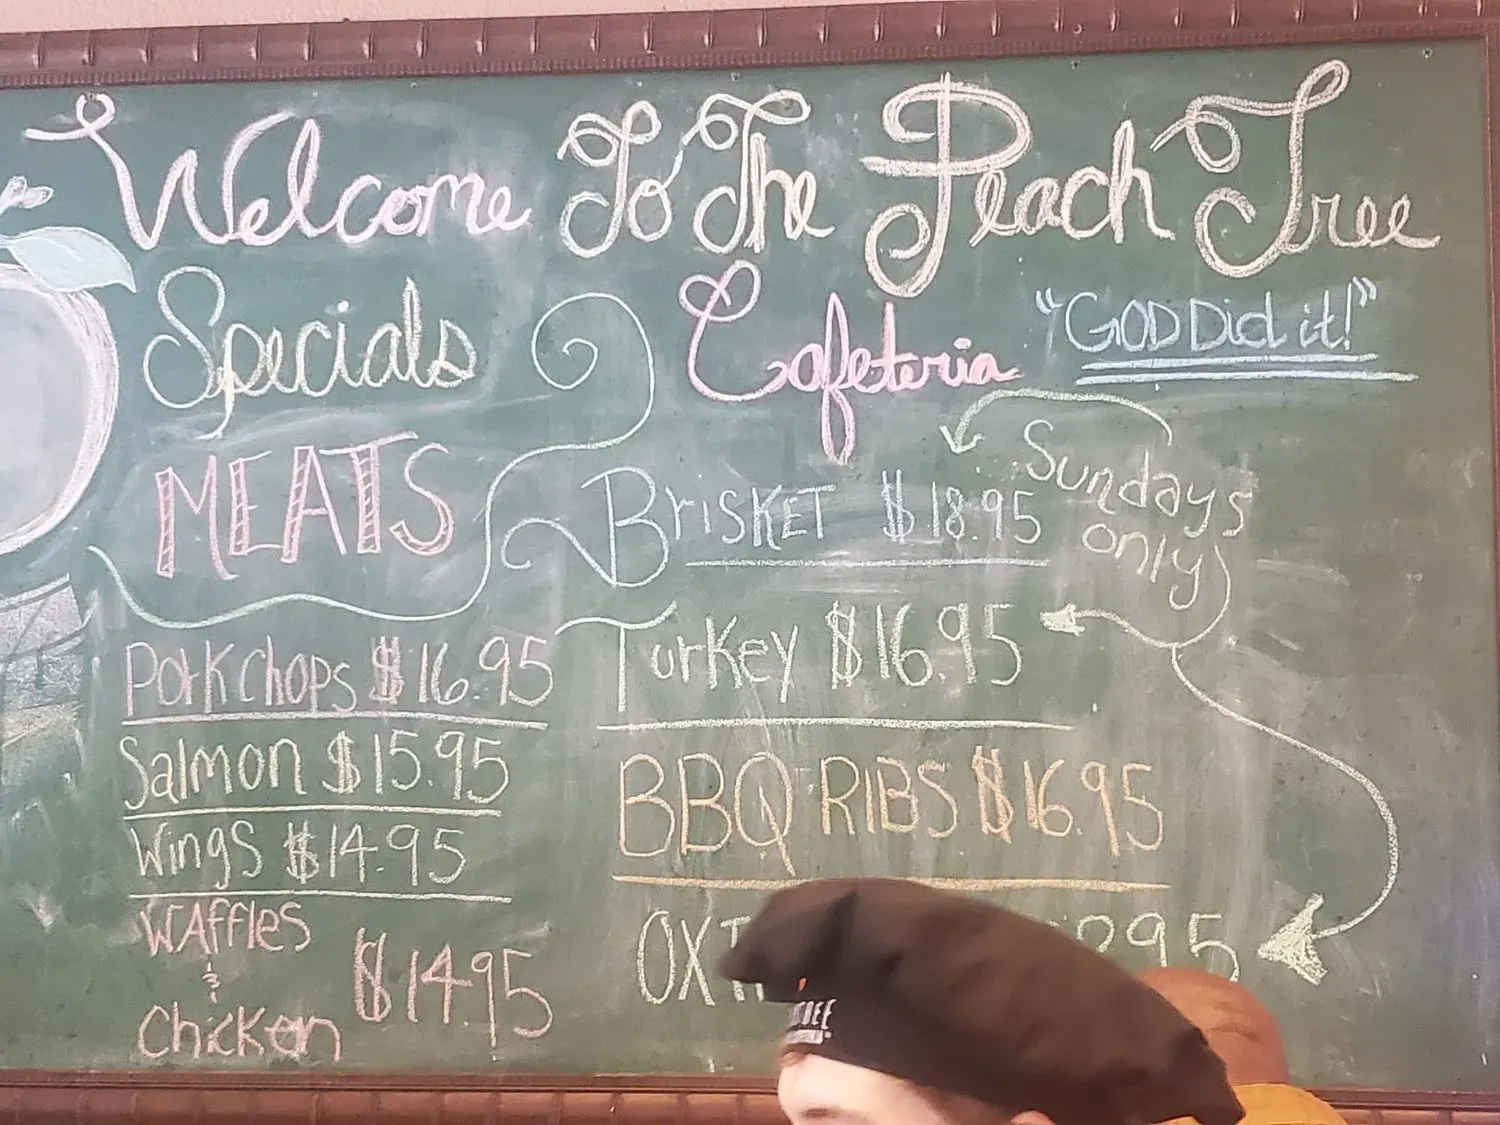 Welcome To The Peach Tree
Cafeteria
"GOD Did it!"
Specials
MEATS
Pork Chops $16.95
Salmon $15.95
Wings $14.95
WAffles
&
Chicken $14.95
Sundays
only
BrisKET $18.95
Turkey $16.95
BBQ RIBS $16.95